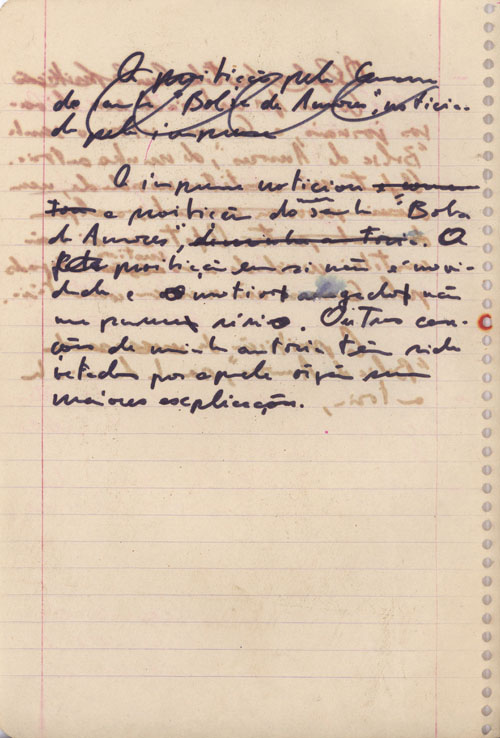 A proibição pela Censura
do samba "Bolsa de Amores", noticia-
do pela imprensa
A imprensa noticiou
a proibição do meu samba "Bolsa
de Amores", de minha autoria. A
proibição em si não é novi-
dade e o motivo alegado não
me parece sério. Outras can-
ções de minha autoria têm sido
vetadas por aquele órgão sem
maiores explicações.